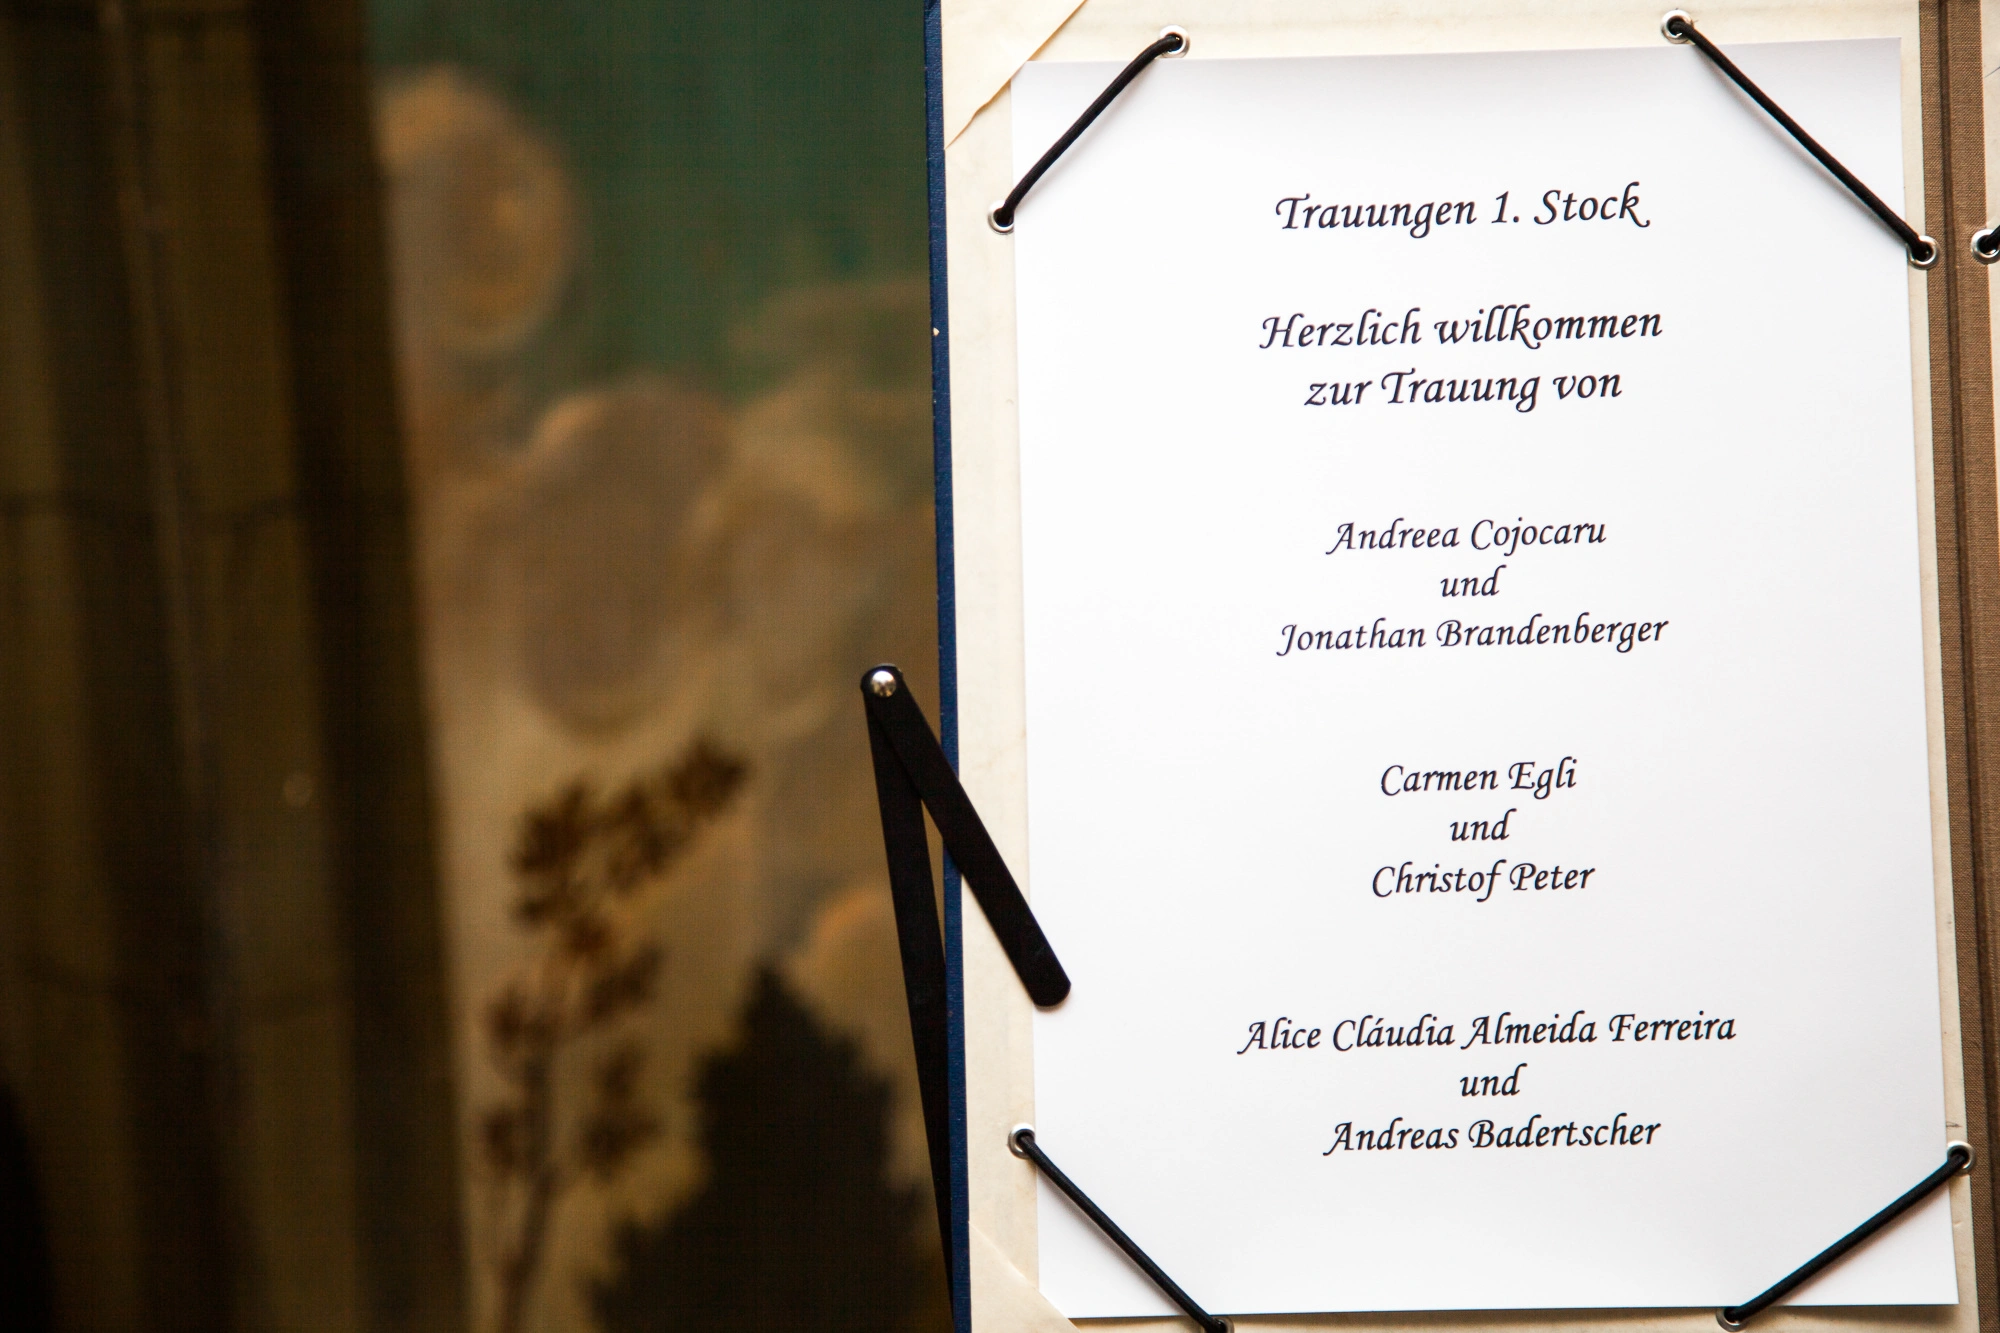 Trauungen 1. Stock
Herzlich willkommen
zur Trauung von
Andreea Cojocaru
und
Jonathan Brandenberger
Carmen Egli
und
Christof Peter
Alice Cláudia Almeida Ferreira
und
Andreas Badertscher